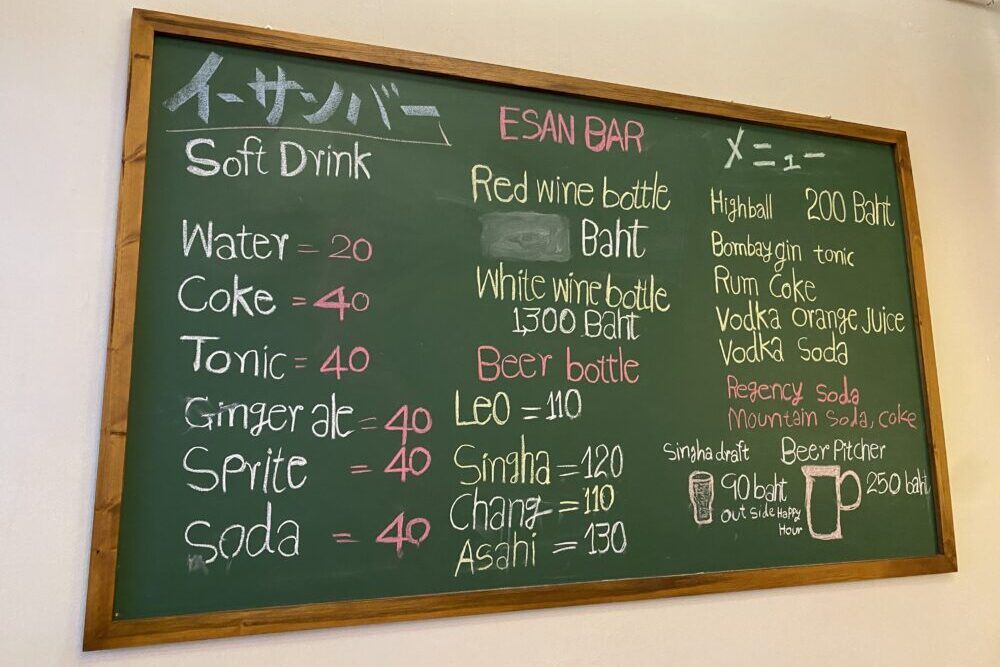 イーサンバー
Soft Drink
Water = 20
Coke = 40
Tonic = 40
Ginger ale = 40
Sprite = 40
Soda = 40
ESAN BAR
Red wine bottle
Baht
White wine bottle
1,300 Baht
Beer bottle
Leo = 110
Singha = 120
Chang = 110
Asahi = 130
メニュー
Highball 200 Baht
Bombay gin tonic
Rum Coke
Vodka orange juice
Vodka Soda
Regency soda
Mountain Soda, coke
Singha draft
90 baht
out side Happy
Hour
Beer Pitcher
250 baht